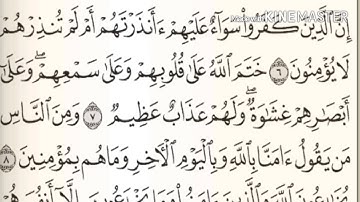 Made with KINEMASTER
إِنَّ ٱلَّذِينَ كَفَرُوا۟ سَوَآءٌ عَلَيْهِمْ ءَأَنذَرْتَهُمْ أَمْ لَمْ تُنذِرْهُمْ
لَا يُؤْمِنُونَ ٦ خَتَمَ ٱللَّهُ عَلَىٰ قُلُوبِهِمْ وَعَلَىٰ سَمْعِهِمْ ۖ وَعَلَىٰٓ
أَبْصَٰرِهِمْ غِشَٰوَةٌ ۖ وَلَهُمْ عَذَابٌ عَظِيمٌ ٧ وَمِنَ ٱلنَّاسِ
مَن يَقُولُ ءَامَنَّا بِٱللَّهِ وَبِٱلْيَوْمِ ٱلْءَاخِرِ وَمَا هُم بِمُؤْمِنِينَ ٨